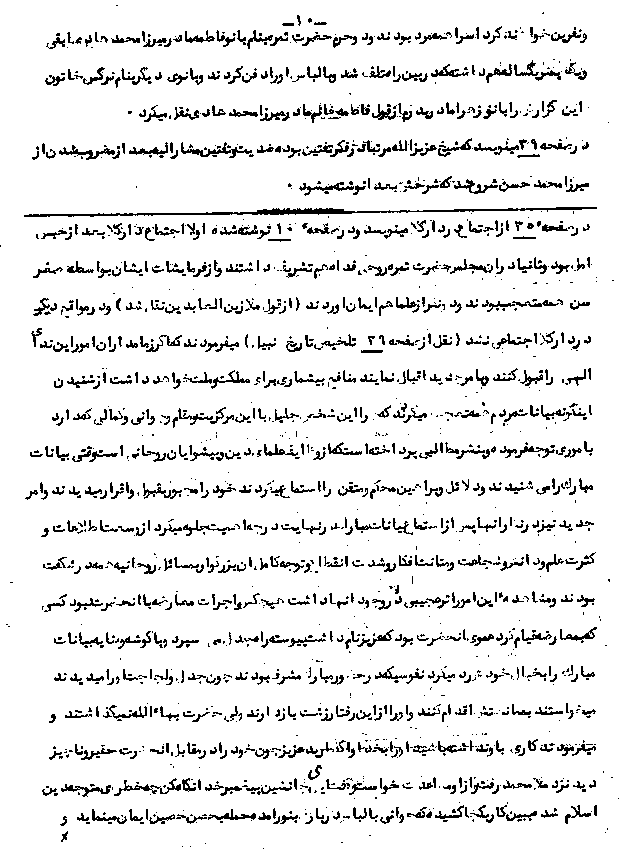 -۱۰-
ونفرین خوا ند کرد اسرا همه مرد بودند ود وحرم حضرت ثمره بنام بانو فاطمه مادر میرزا محمد هادی سابقی
ویک پسر یکساله هم داشته که در بین راه تلف شد وبالباس اوراد فن کردند وبانوی دیگر بنام نرگس خاتون
این گزارش رابانو زهرا مادر پدرم از قول فاطمه خانم مادر میرزا محمد هادی نقل میکرد ۰
در صفحه ۳۹ مینویسد که شیخ عزیز الله مرتبا در فکر فتنه بوده ضدیت وفتنه مشارالیه بعد از مضروب شدن از
میرزا محمد حسن شروع شد که شرحش بعد انوشته میشود ۰
در صفحه ۳۵ از اجتماع در دارکلا مینویسد ودر صفحه ۱۰ نوشته شده اولا اجتماع در دارکلا بعد از حبس
امل بود وثانیا در ان مجلس حضرت ثمره روحی فداه هم تشریف داشتند واز فرمایشات ایشان بواسطه صغر
سن همه متعجب بودند ودونفر از علما هم ایمان اوردند (از قول ملا زین العابدین نقل شد) ودر مواقع دیگر
در دارکلا اجتماعی نشد (نقل از صفحه ۲۹ تلخیص تاریخ نبیل) میفرمودند که اگر زمامداران امور این ندای
الهی را قبول کنند وبامر جدید اقبال نمایند منافع بیشماری برای مملکت وملت خواهد داشت از شنیدن
اینگونه بیانات مردم همه متعجب میگردند که چرا این شخص جلیل با این مرکزیت ومقام وجوانی وکمالی که دارد
باموری توجه فرموده وبنشر مطالبی پرداخته است که از وظایف علماء دین وپیشوایان روحانی است وقتی بیانات
مبارک را می شنیدند ودلائل وبراهین محکم ومتقن را استماع میکردند خود را مجبور بقبول واقرار میدیدند وامر
جدید نیز در نظر انها پس از استماع بیانات مبارک در نهایت درجه اهمیت جلوه میکرد از وسعت اطلاعات و
کثرت علم ودانش وشجاعت ومتانت افکار وشدت انقطاع وتوجه کامل ان بزرگوار بمسائل روحانیه همه در شگفت
بودند ومشاهده این امور اثر عجیبی در وجود انها داشت هیچکس را جرات معارضه با انحضرت نبود کسی
که بمعارضه قیام کرد عموی انحضرت بود که عزیز نام داشت پیوسته راه جدل می سپرد وبا گوشه وکنایه بیانات
مبارک را بخیال خود رد میکرد نفوسیکه در حضور مبارک مشرف بودند چون جدل ولجاجت اورا میدیدند
میخواستند بممانعتش اقدام کنند واورا از این رفتار زشت باز دارند ولی حضرت بهاءالله نمیگذاشتند و
میفرمودند کاری باو نداشته باشید اورا بخدا واگذارید عزیز چون خود را در مقابل انحضرت حقیر وناچیز
دید نزد ملا محمد رفت واز او مساعدت خواست وگفت ای جانشین پیغمبر خدا نگاه کن چه خطری متوجه دین
اسلام شده ببین کار بکجا کشیده که جوانی بالباس درباری بنور امده حمله بحصن حصین ایمان مینماید و